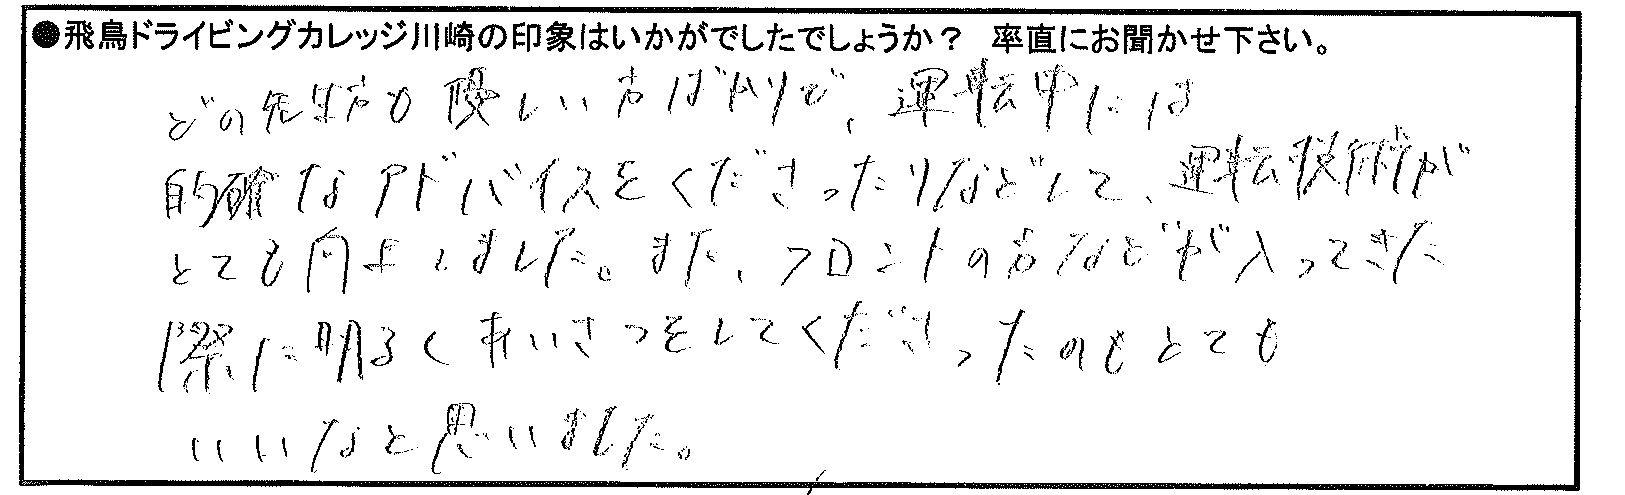 ●飛鳥ドライビングカレッジ川崎の印象はいかがでしたでしょうか？ 率直にお聞かせ下さい。
どの先生方も優しい方ばかりで、運転中には
的確なアドバイスをくださったりなどして、運転技術が
とても向上しました。また、フロントの方などが入ってきた
際に明るくあいさつをしてくださったのもとても
いいなと思いました。